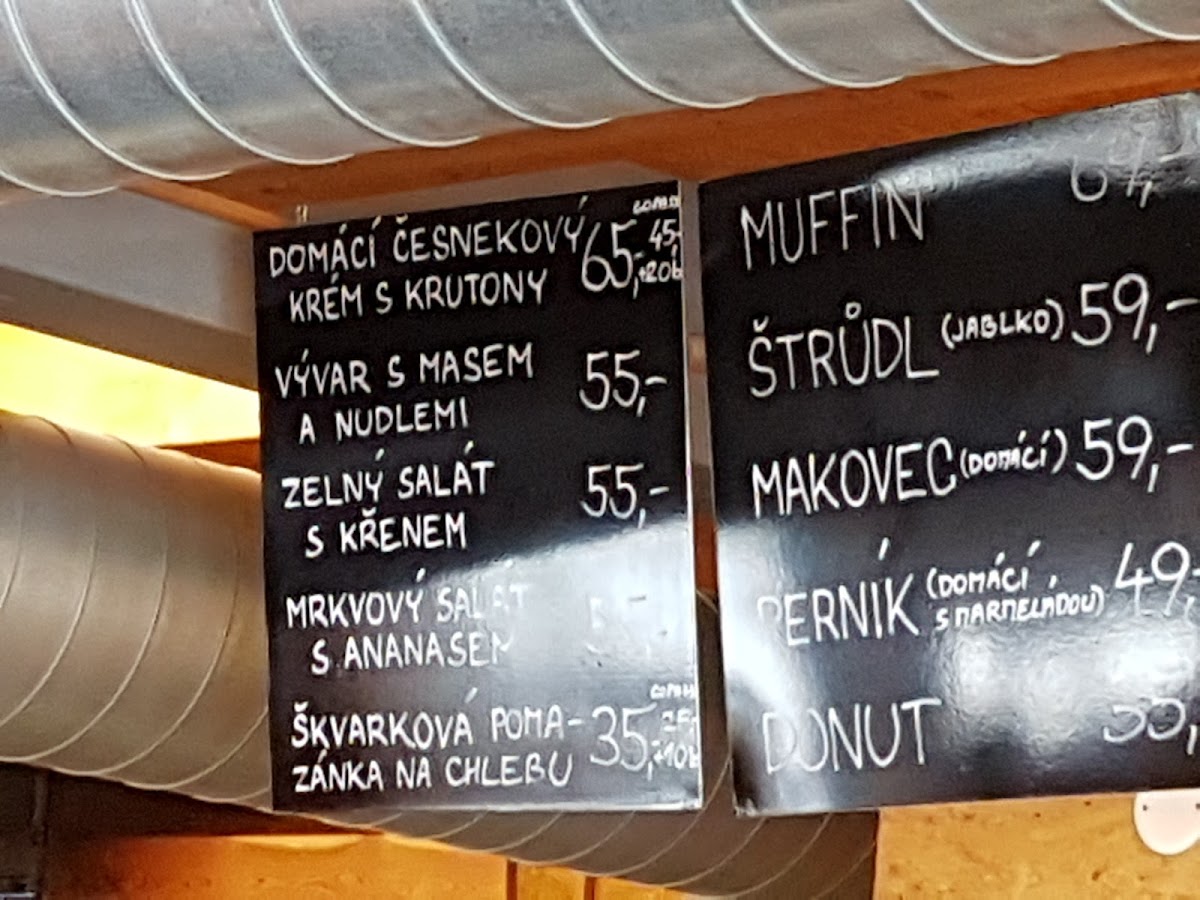 DOMÁCÍ ČESNEKOVÝ 65,- 45,-
KRÉM S KRUTONY +20b
VÝVAR S MASEM 55,-
A NUDLEMI
ZELNÝ SALÁT 55,-
S KŘENEM
MRKVOVÝ SALÁT
S ANANASEM
ŠKVARKOVÁ POMA- 35,- 25,-
ZÁNKA NA CHLEBU +10b
MUFFIN
ŠTRŮDL (JABLKO) 59,-
MAKOVEC (DOMÁCÍ) 59,-
PERNÍK (DOMÁCÍ 49,-
S MARMELÁDOU)
DONUT